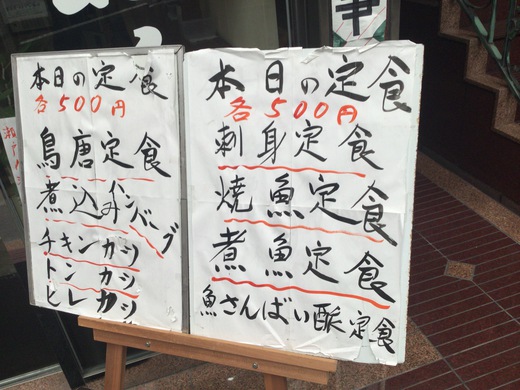 本日の定食
各500円
鳥唐定食
煮込みハンバーグ
チキンカツ
トンカツ
ヒレカツ
本日の定食
各500円
刺身定食
焼魚定食
煮魚定食
魚さんばい酢定食